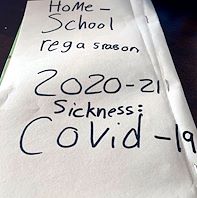 Home-
School
regasrason
2020-21
Sickness:
Covid-19